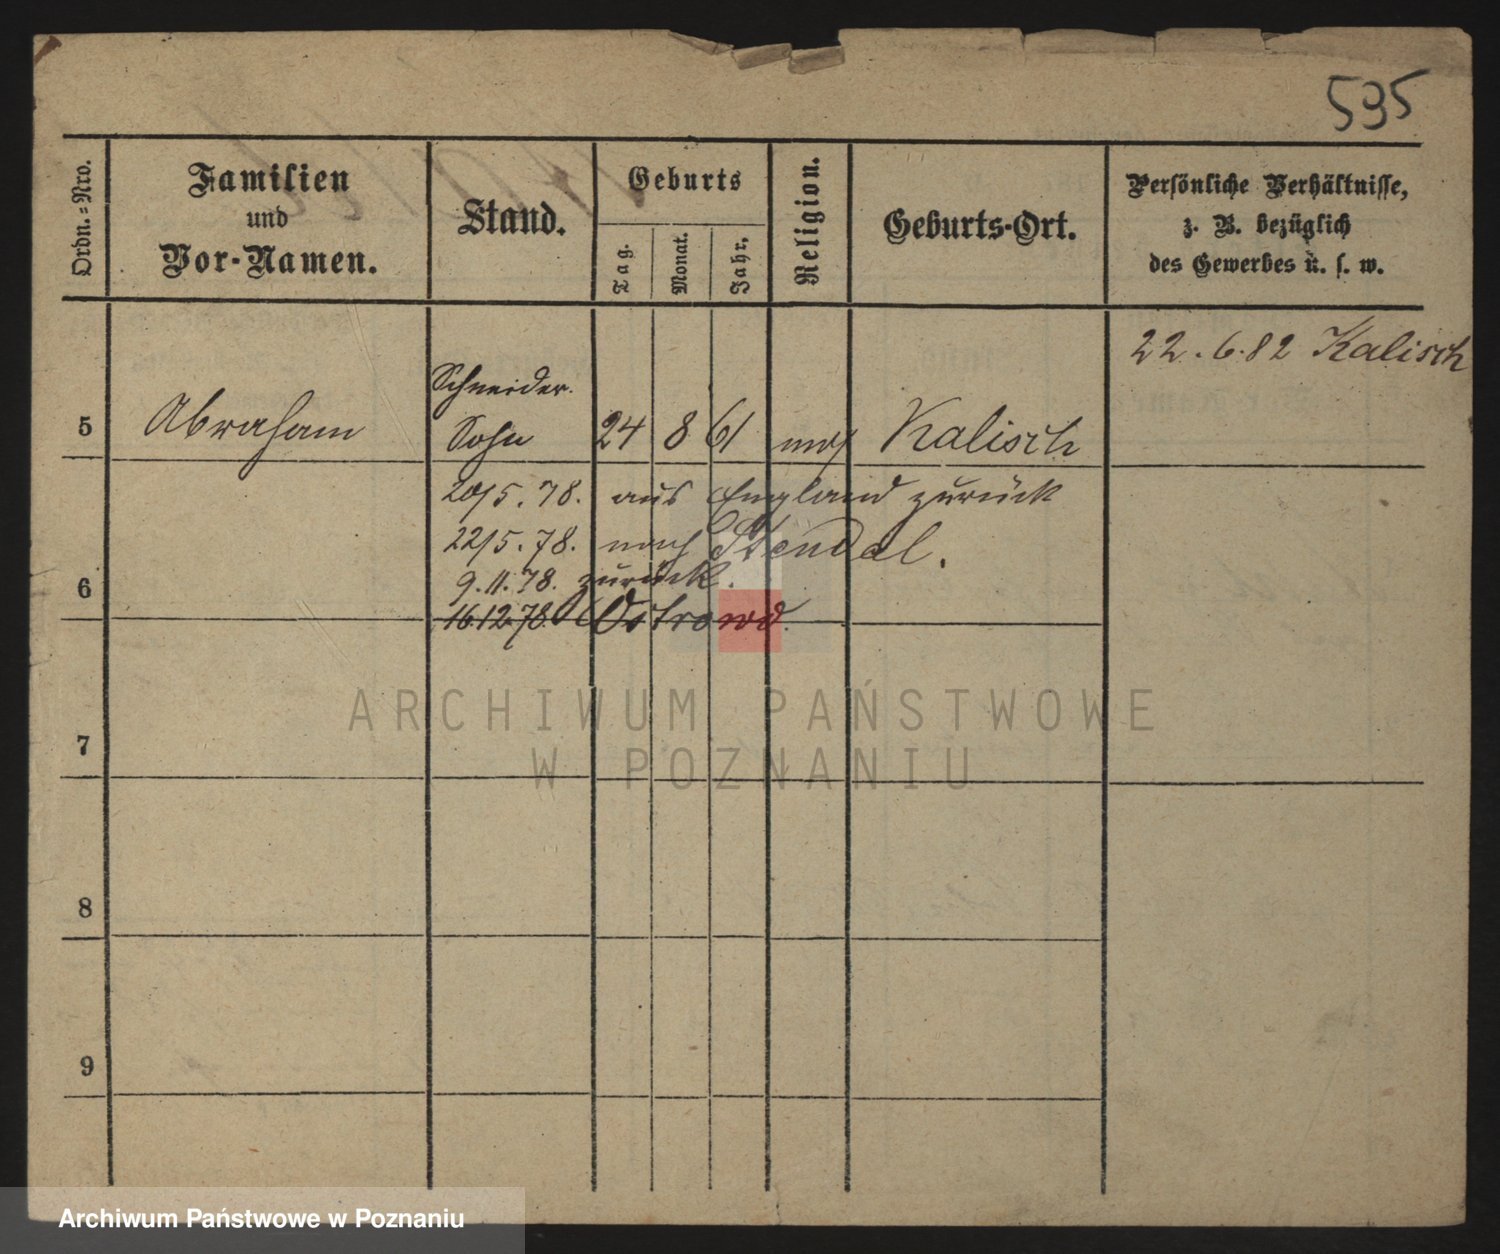 535
Ordn.=Nro.
Familien
und
Vor-Namen.
Stand.
Geburts
Tag.
Monat.
Jahr.
Religion.
Geburts-Ort.
Persönliche Verhältnisse,
z. B. bezüglich
des Gewerbes u. s. w.
22.6.82 Kalisch
5
Abraham
Schneider.
Sohn
24
8
61
mos
Kalisch
20/5.78. aus England zurück
22/5.78. nach Stendal.
9.11.78. zurück.
6
16.12.78. Ostrowo
7
8
9
ARCHIWUM PAŃSTWOWE
W POZNANIU
Archiwum Państwowe w Poznaniu